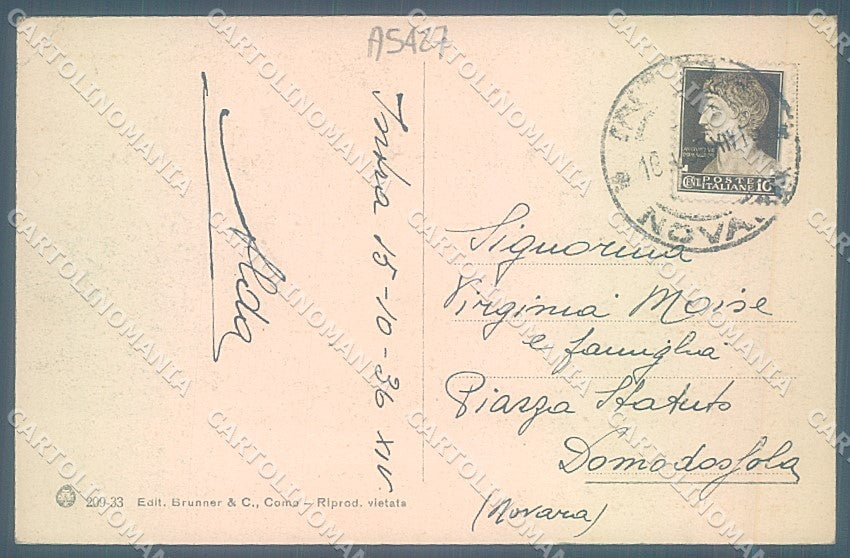 A5427
15-10-36 XIV
Alda
POSTE
ITALIANE
CENT 10
NOVARA
Signorina
Virginia Moise
e famiglia
Piazza Statuto
Domodossola
(Novara)
209-33 Edit. Brunner & C., Como – Riprod. vietata
CARTOLINOMANIA